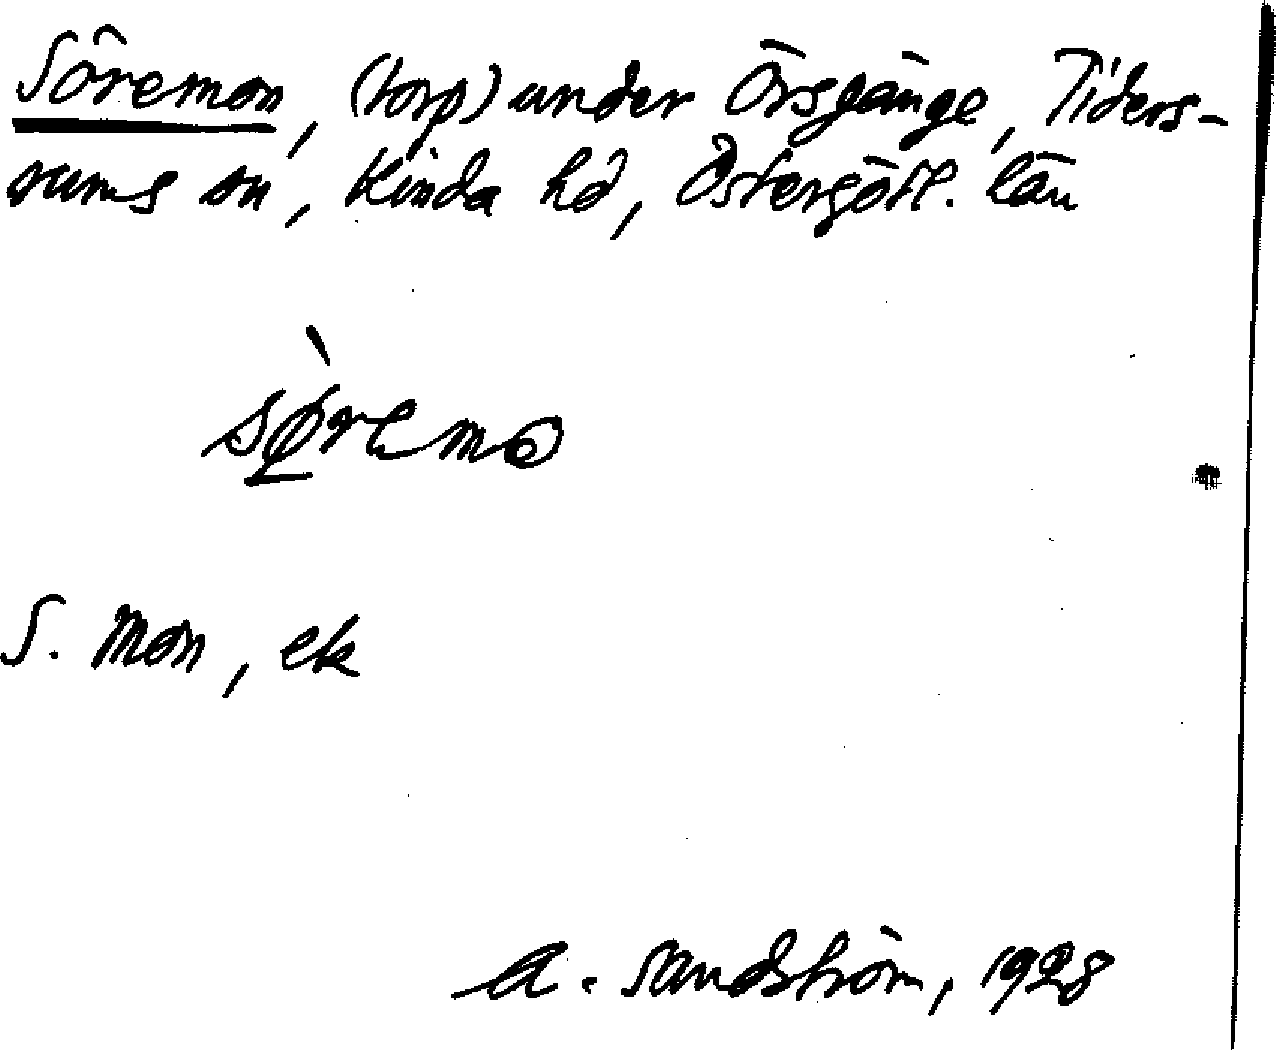 Söremon, (torp) under Örsgänge, Tiders-
rums sn, Kinda hd, Östergötl. län
sø̀remo
S. Mon, ek
A. Sandström, 1928